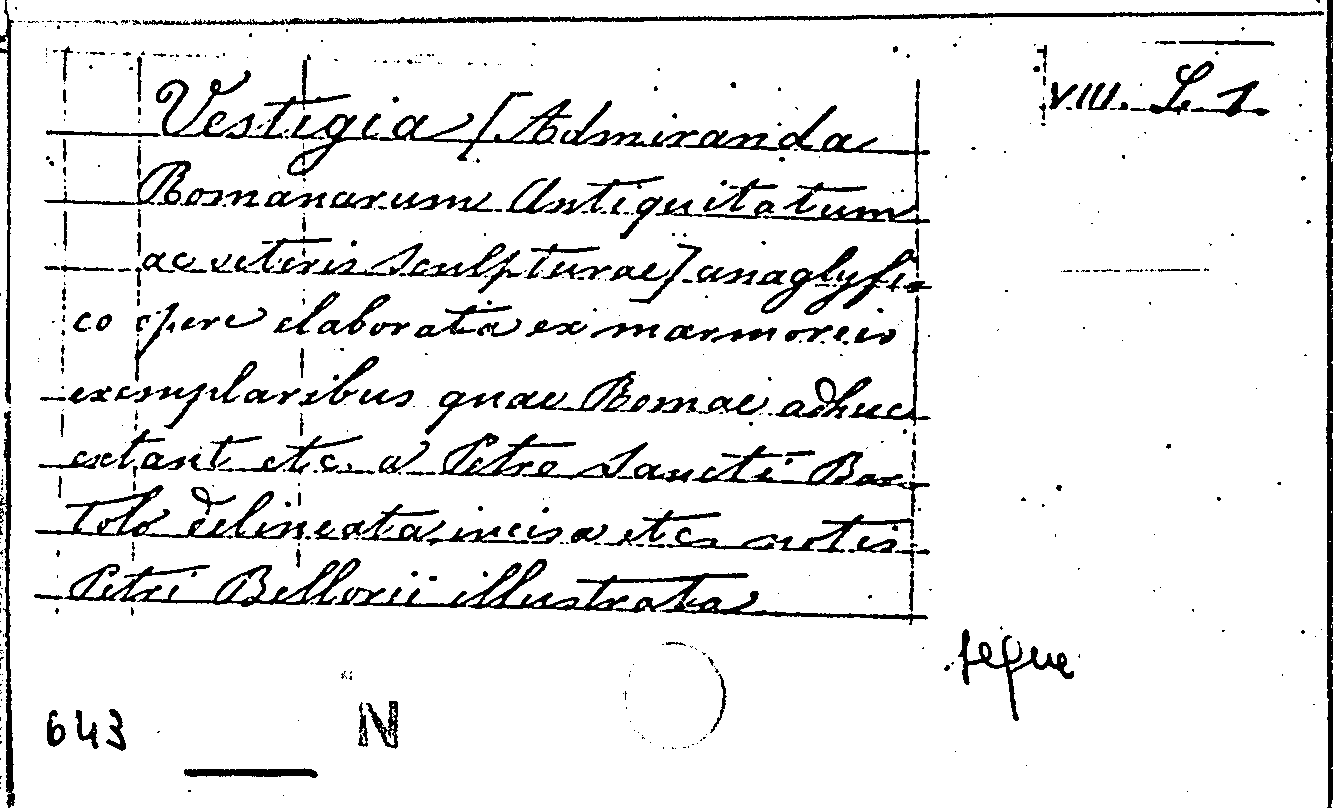 VIII. L. 1.
Vestigia [Admiranda
Romanarum Antiquitatum
ac veteris sculpturae] anaglyfi-
co opere elaborata ex marmoreis
exemplaribus quae Romae adhuc
extant etc. a Petro Sancti Bar-
tolo delineata, incisa etc. notis
Petri Bellorii illustrata
segue
643
N